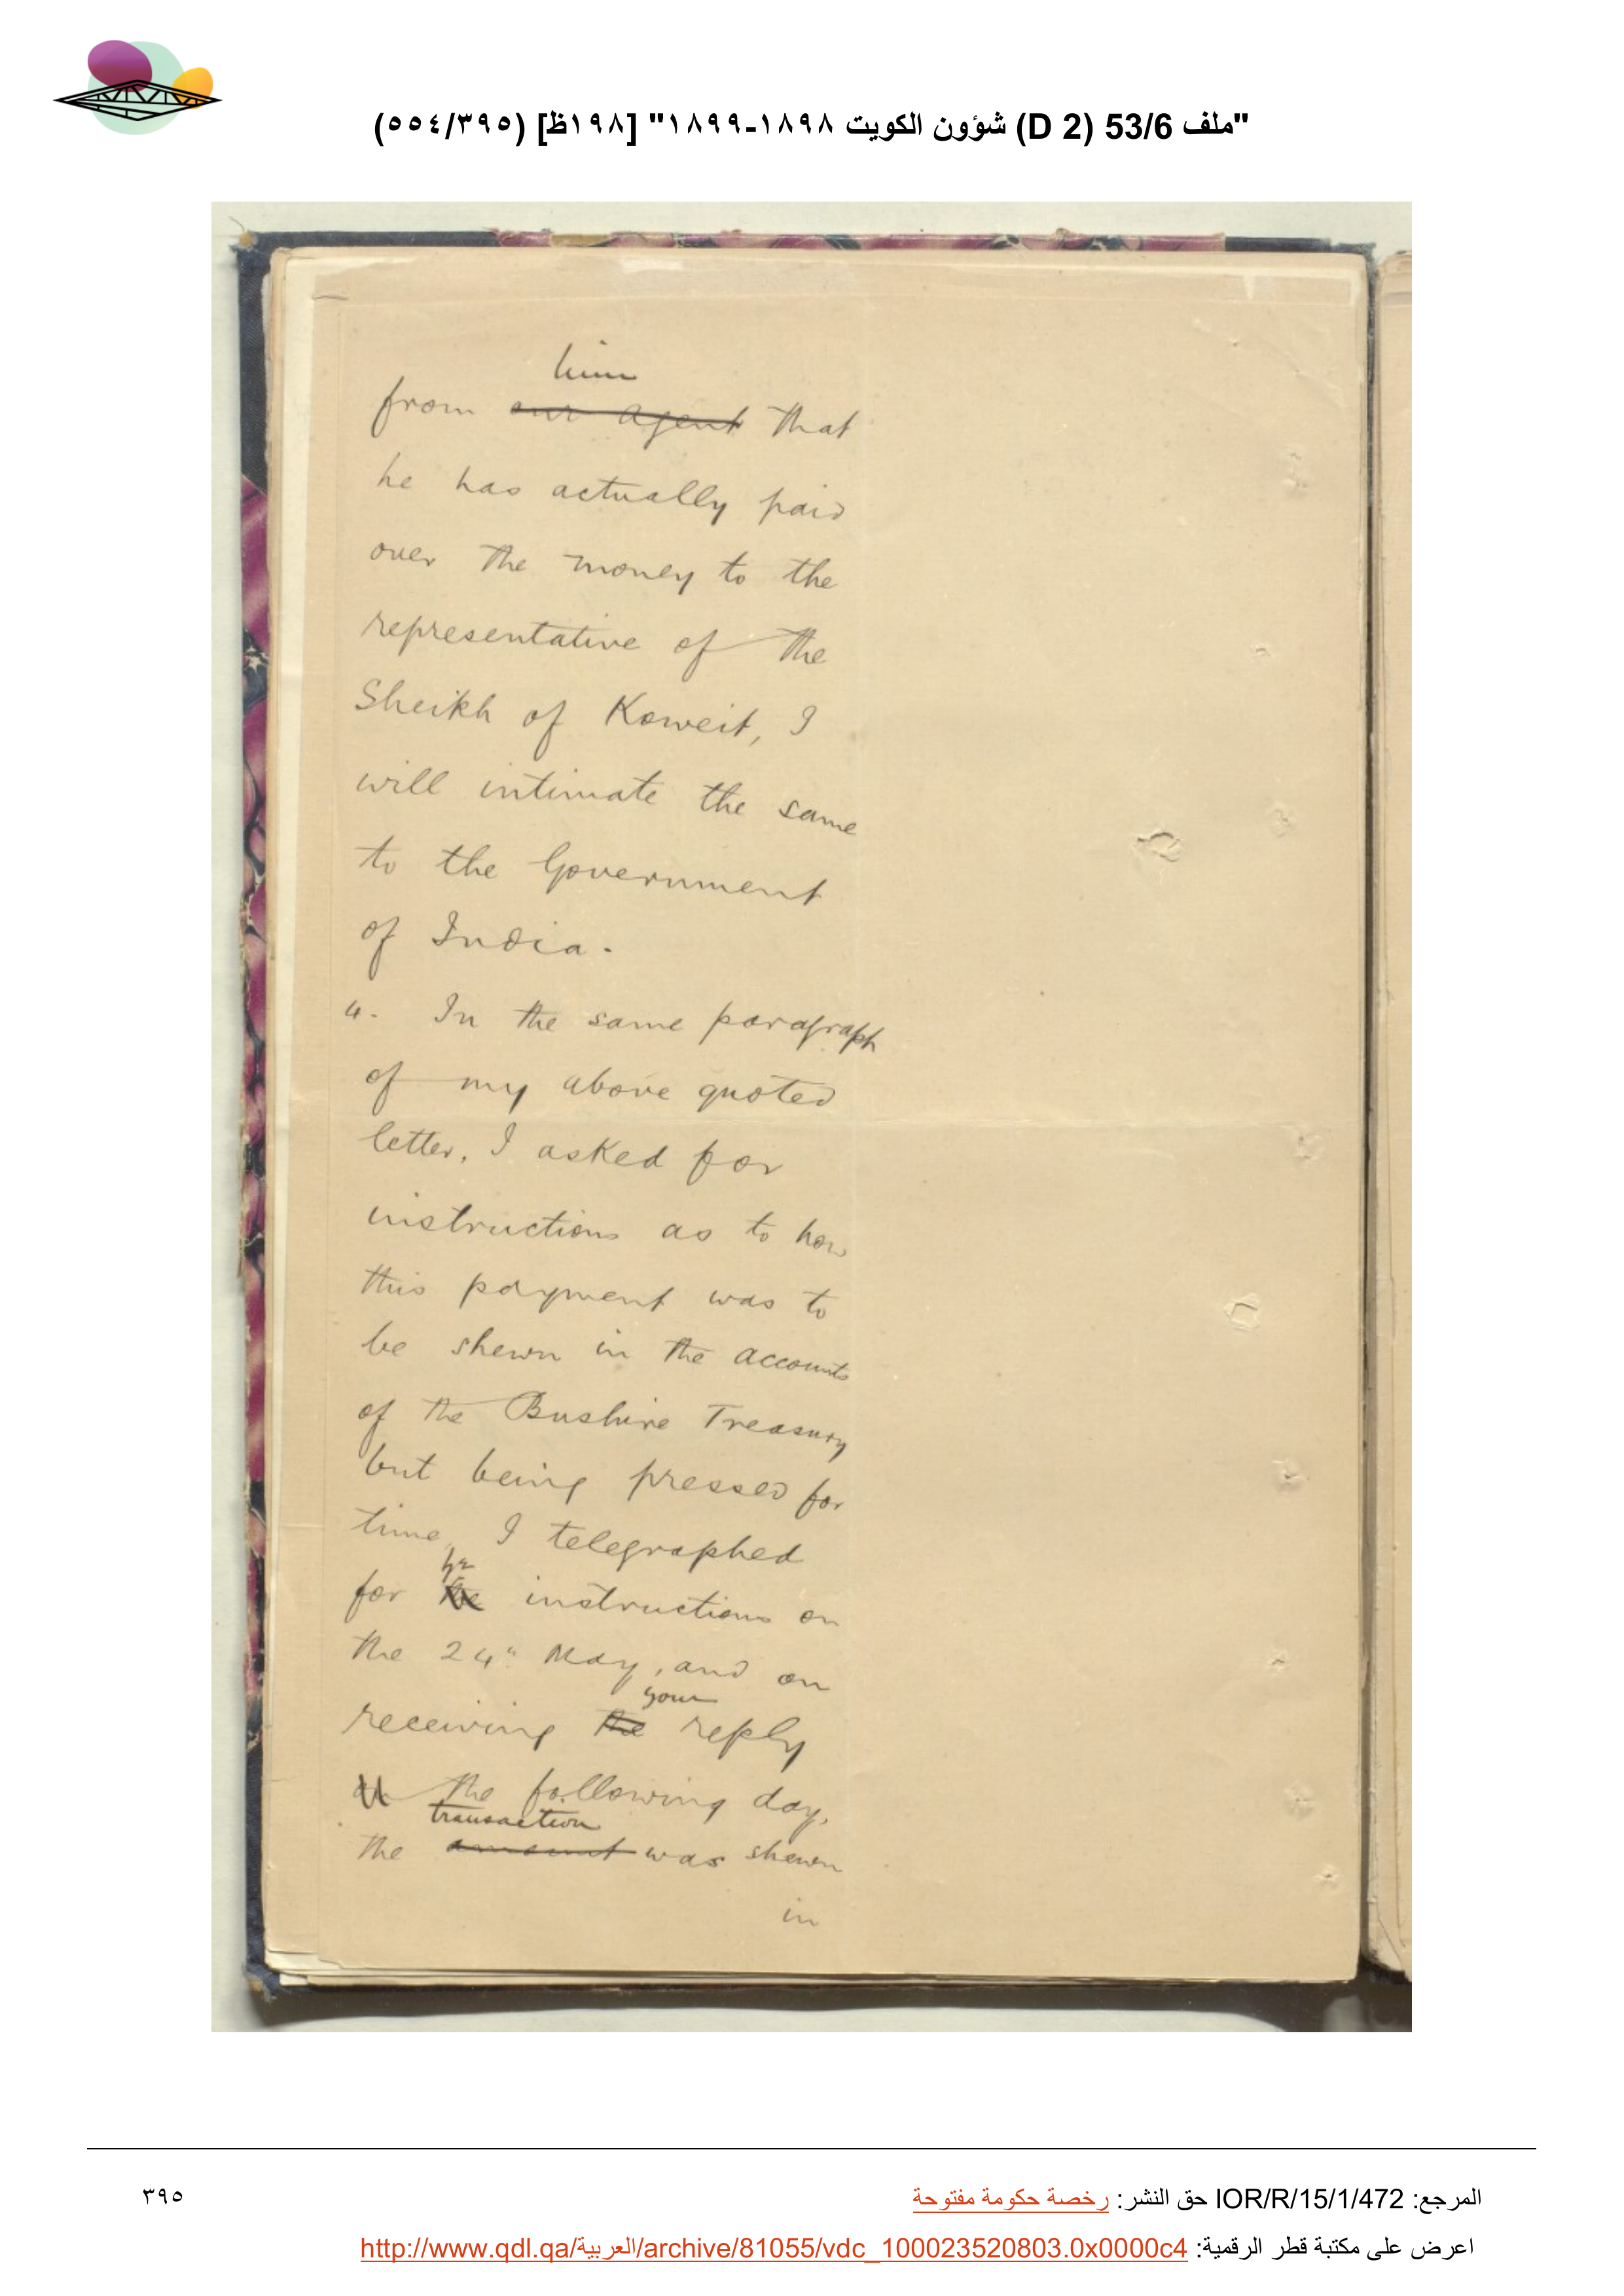 "ملف 53/6 (D 2) شؤون الكويت ١٨٩٨-١٨٩٩" [١٩٨ظ] (٥٥٤/٣٩٥)
him
from our agent that
he has actually paid
over the money to the
representative of the
Sheikh of Koweit, I
will intimate the same
to the Government
of India.
4. In the same paragraph
of my above quoted
letter, I asked for
instructions as to how
this payment was to
be shewn in the accounts
of the Bushire Treasury
but being pressed for
time, I telegraphed
for the instructions on
the 24th May, and on
your
receiving the reply
the following day,
transaction
the amount was shewn
in
المرجع: IOR/R/15/1/472 حق النشر: رخصة حكومة مفتوحة
٣٩٥
اعرض على مكتبة قطر الرقمية: http://www.qdl.qa/العربية/archive/81055/vdc_100023520803.0x0000c4